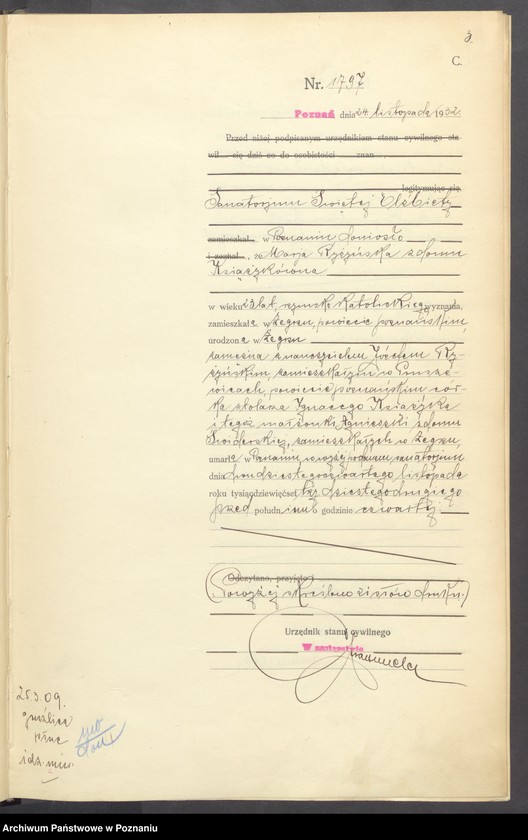 3.
C.
Nr. 1797
Poznań dnia 24. listopada 1932.
Przed niżej podpisanym urzędnikiem stanu cywilnego sta
wił się dziś co do osobistości znan
legitymując się
Sanatorjum Świętej Elżbiety
zamieszkał w Poznaniu doniosło
i zeznał, że Marja Ryżyńska z domu
Książkówna
w wieku 23 lat, rzymsko katolickiego wyznania,
zamieszkała w Żegrzu, powiecie poznańskim
urodzona w Żegrzu
zamężna z nauczycielem Józefem Ry-
żyńskim, zamieszkałym w
powiecie poznańskim cór-
ka stolarza Ignacego Książka
i tegoż małżonki Agnieszki z domu
Świderskiej, zamieszkałych w Żegrzu,
umarła w Poznaniu, w
dnia dwudziestegoczwartego listopada
roku tysiącdziewięćset trzydziestegodrugiego
przed południu o godzinie czwartej.
Odczytano, przyjęto i
Powyżej skreślono słów druku.
Urzędnik stanu cywilnego
W zastępstwie
25.3.09.
gruźlica
płuc
Archiwum Państwowe w Poznaniu